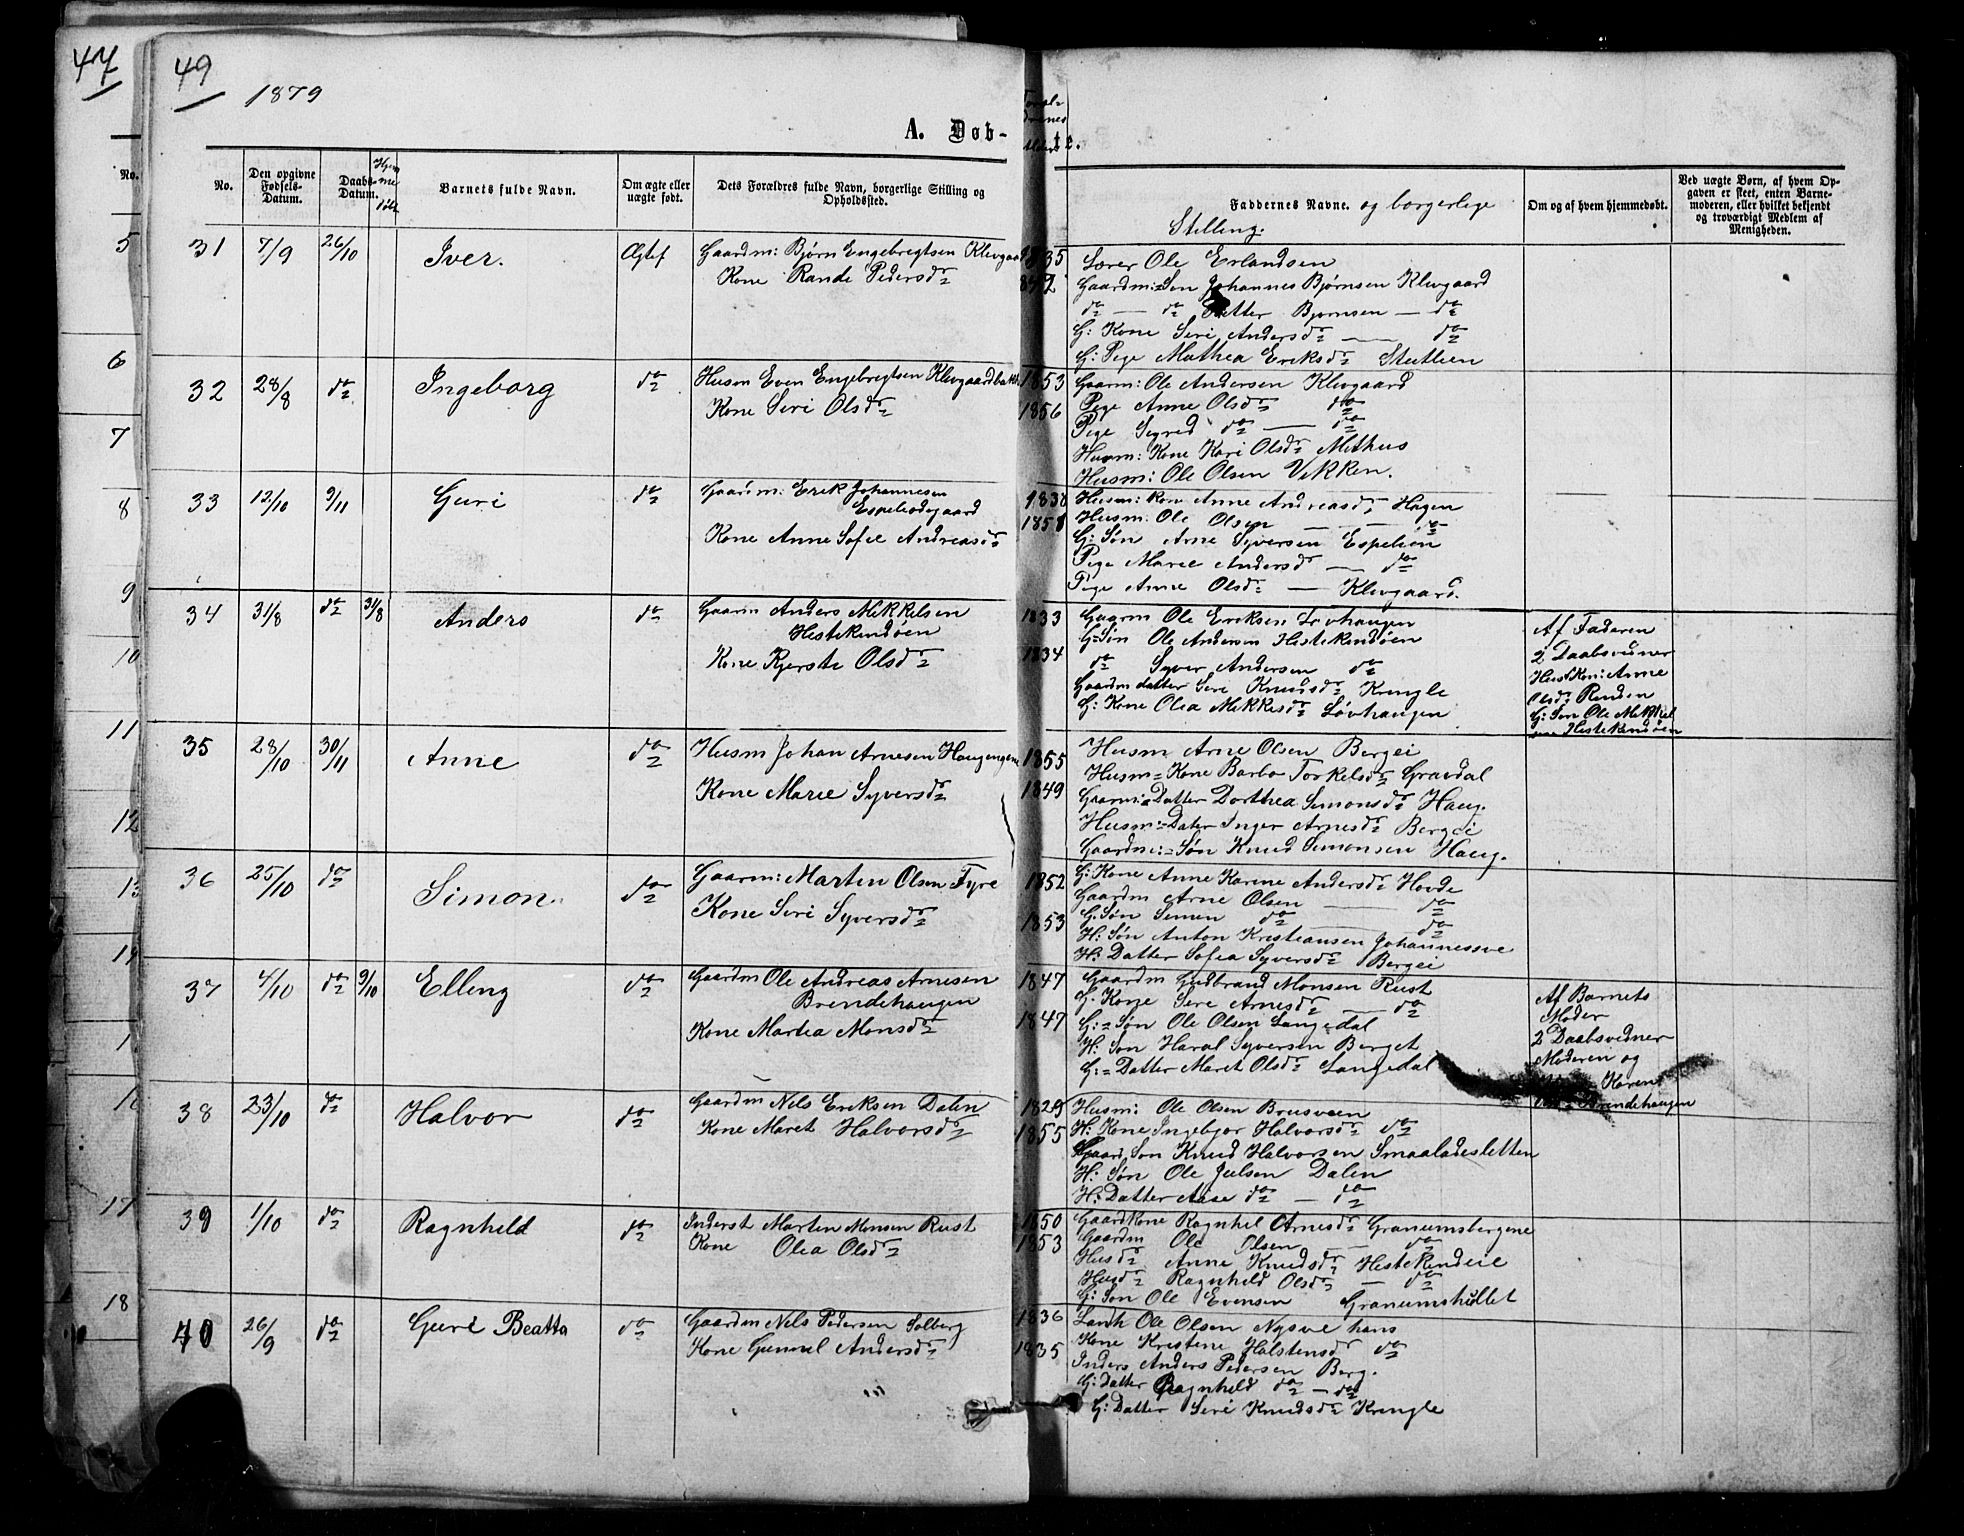 47
49
1879
A. Døb-
te.
No.
No.
Den opgivne Fødsels-Datum.
Daabs-Datum.
Hjemme
Barnets fulde Navn.
Om ægte eller uægte født.
Dets Forældres fulde Navn, borgerlige Stilling og Opholdssted.
Faddernes Navne. og borgerlige
Stilling.
Om og af hvem hjemmedøbt.
Ved uægte Børn, af hvem Opgaven er skeet, enten Barnemoderen, eller hvilket bekjendt og troværdigt Medlem af Menigheden.
5
6
7
8
9
10
11
12
13
14
17
18
31 7/9 26/10 Iver. Ægtef Gaardm: Bjørn Engebregtsen Klevgaard 1835
Kone Rande Pedersdr
Lærer Ole Erlandsen
Gaardm:=Søn Johannes Bjørnsen Klevgaard
do — do Bjørnsen — do
G: Kone Seri Andersdr — do
G: Pige Mathea Eriksdr Stutlien
32 28/8 do Ingeborg do Husm Even Engebregtsen Klevgaardbakk 1853
Kone Seri Olsdr 1856
Gaarm: Ole Andersen Klevgaard
Pige Anne Olsdr do
Pige Sigred do — do
Husm: Kone Kari Olsdr Methus
Husm: Ole Olsen Vikken.
33 12/10 9/11 Guri do Gaarm: Erik Johannesen
Espeliodegaard
Kone Anne Sofie Andreasdr 1851
Husm: Kon Anne Andreasdr Hagen
Husm: Ole Olsen — do
G: Søn Arne Syversen Espelien
Pige Marie Andersdr — do
Pige Anne Olsdr — Klevgaard.
34 31/8 do 31/8 Anders do Gaarm Anders Mikkelsen 1833
Hestekindøen
Kone Kjersti Olsdr 1834
Gaarm Ole Eriksen Lovhaugen
G=Søn Ole Andersen Hestekindøen
do Syver Andersen do
Gaardm datter Seri Knudsdr Kringle
G: Kone Olia Mikkelsdr Løvhaugen
Af Faderen
2 Daabsvidner
Hus Kon: Anne
Olsdr Renden
G: Søn Ole Mikkel
sen Hestekindøen
35 28/10 30/11 Anne do Husm Johan Arnesen Haugengene 1855
Kone Marie Syversdr 1849
Husm Arne Olsen Bergei
Husm=Kone Barbo Torkelsdr Gravdal
Gaarm=Datter Dorthea Simonsdr Haug.
Husm:=Dater Inger Arnesdr Bergei
Gaardm:=Søn Knud Simonsen Haug.
36 25/10 do Simon do Gaarm: Martin Olsen Fyre 1852
Kone Seri Syversdr 1853
G: Kone Anne Karine Andersdr Hovde
Gaardm Arne Olsen — do
G. Søn Simen do — do
H: Søn Anton Kristiansen Johannessve
H: Datter Sofia Syversdr Bergei
37 4/10 do 9/10 Elling do Gaardm Ole Andreas Arnesen 1847
Brendehaugen
Kone Martea Monsdr 1847
Gaardm Gudbrand Monsen Rust
G. Kone Seri Arnesdr — do
G:=Søn Ole Olsen Langedal
H: Søn Haral Syversen Berget
G:=Datter Maret Olsdr Langedal
Af Barnets
Moder
2 Daabsvidner
Moderen og
Karen
Brendehaugen
38 23/10 do Halvor do Gaardm Nils Eriksen Dalen 1829
Kone Maret Halvorsdr 1855
Husm: Ole Olsen Brusveen
H: Kone Ingebjor Halvorsdr do
Gaard Søn Knud Halvorsen Smaaladesletten
H: Søn Ole Juelsen Dalen
H: Datter Aase do — do
39 1/10 do Ragnheld do Inderst Marten Monsen Rust 1850
Kone Olea Olsdr 1853
Gaardkone Ragnhel Arnesdr Granumsbergene
Gaardm Ole Olsen — do
Husdr Anne Knudsdr Hestekindeie
Husdr Ragnheld Olsdr — do
G: Søn Ole Evensen Granumshullet
40 26/9 do Guri Beatta do Gaardm Nils Pedersen Solberg 1836
Kone Gunnil Andersdr 1835
Landh Ole Olsen Nysve hans
Kone Kristine Halstensdr do
Inders Anders Pedersen Berg.
G: Datter Ragnheld do — do
G: Datter Seri Knudsdr Kringle